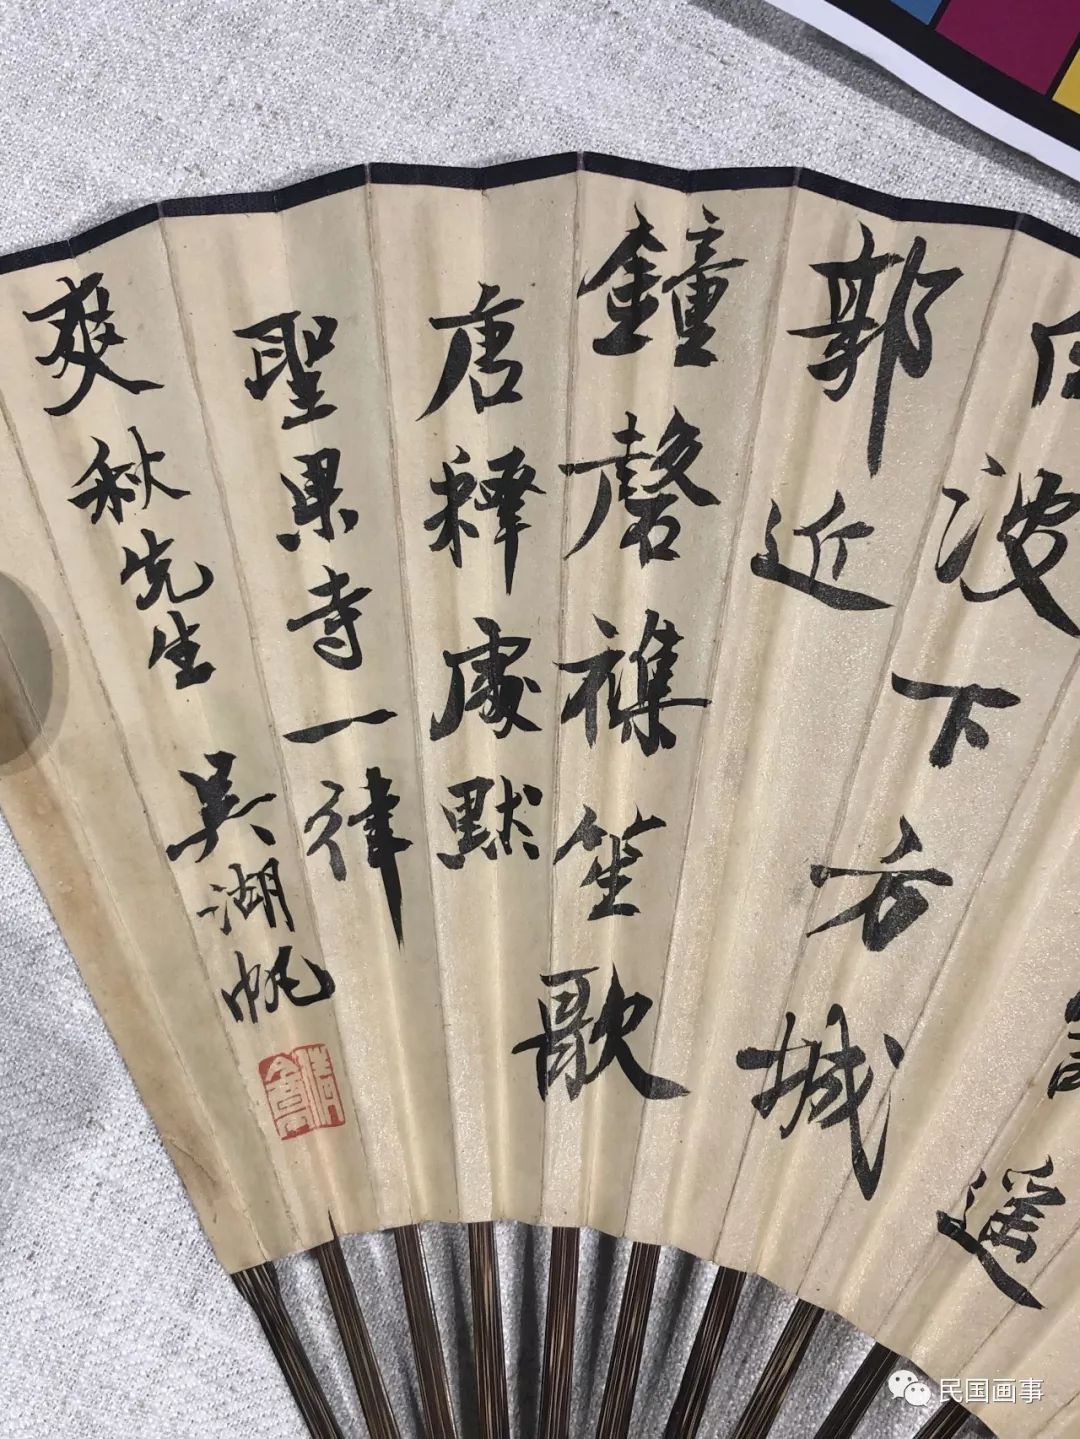 遥
白波下方城
郭近
鐘磬襍笙歌
唐釋處默
聖果寺一律
爽秋先生
吳湖帆
民国画事